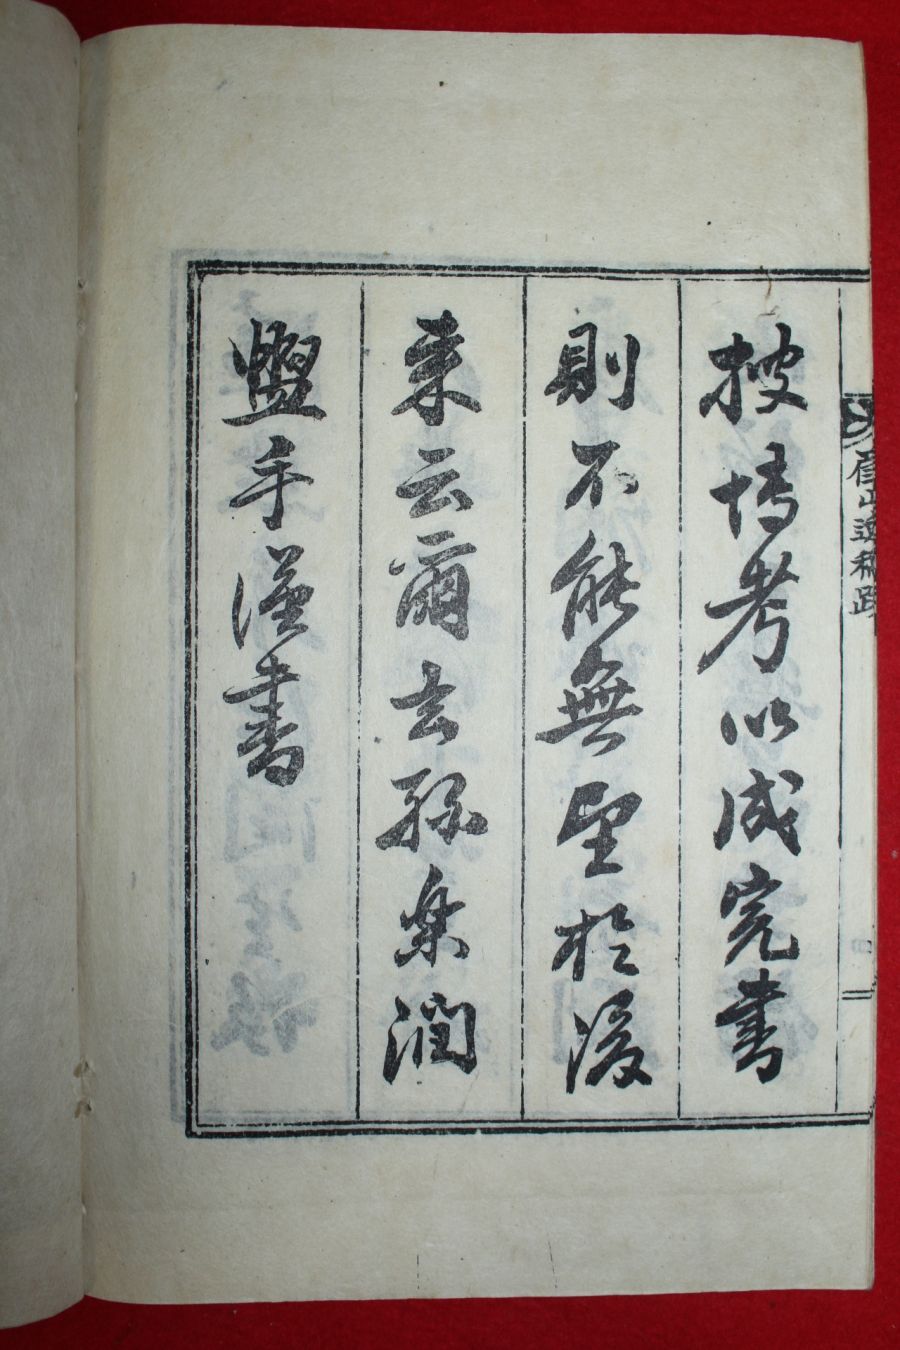 披博考以成完書
則不能無望於後
來云爾玄孫樂潤
盥手謹書
眉山逸稿跋